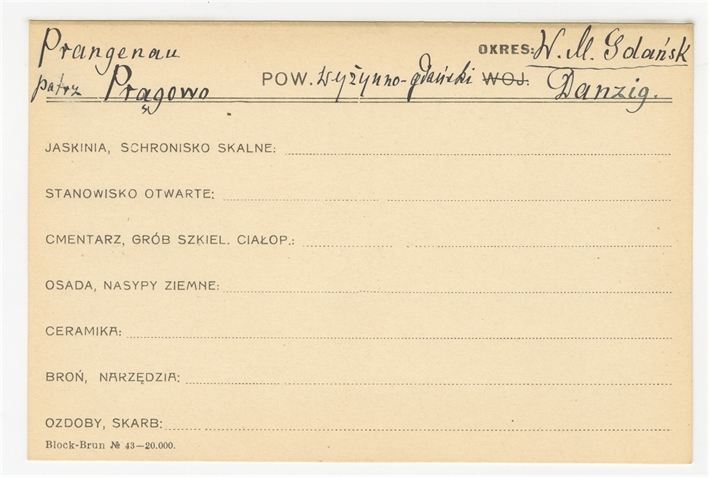 Prangenau OKRES: W. M. Gdańsk
patrz Prągowo POW. wyżynno-gdański WOJ. Danzig.
JASKINIA, SCHRONISKO SKALNE:
STANOWISKO OTWARTE:
CMENTARZ, GRÓB SZKIEL. CIAŁOP.:
OSADA, NASYPY ZIEMNE:
CERAMIKA:
BROŃ, NARZĘDZIA:
OZDOBY, SKARB:
Block-Brun № 43—20.000.